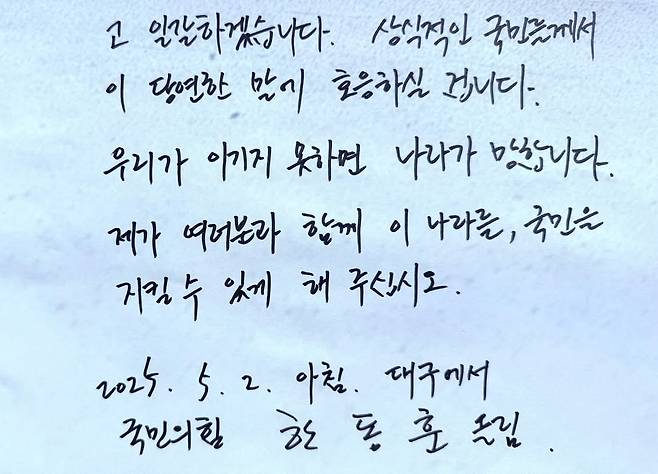 고 일갈하겠습니다. 상식적인 국민들께서
이 당연한 말에 호응하실 겁니다.
우리가 이기지 못하면 나라가 망합니다.
제가 여러분과 함께 이 나라를, 국민을
지킬 수 있게 해 주십시오.
2025. 5. 2. 아침. 대구에서
국민의힘 한 동 훈 올림.